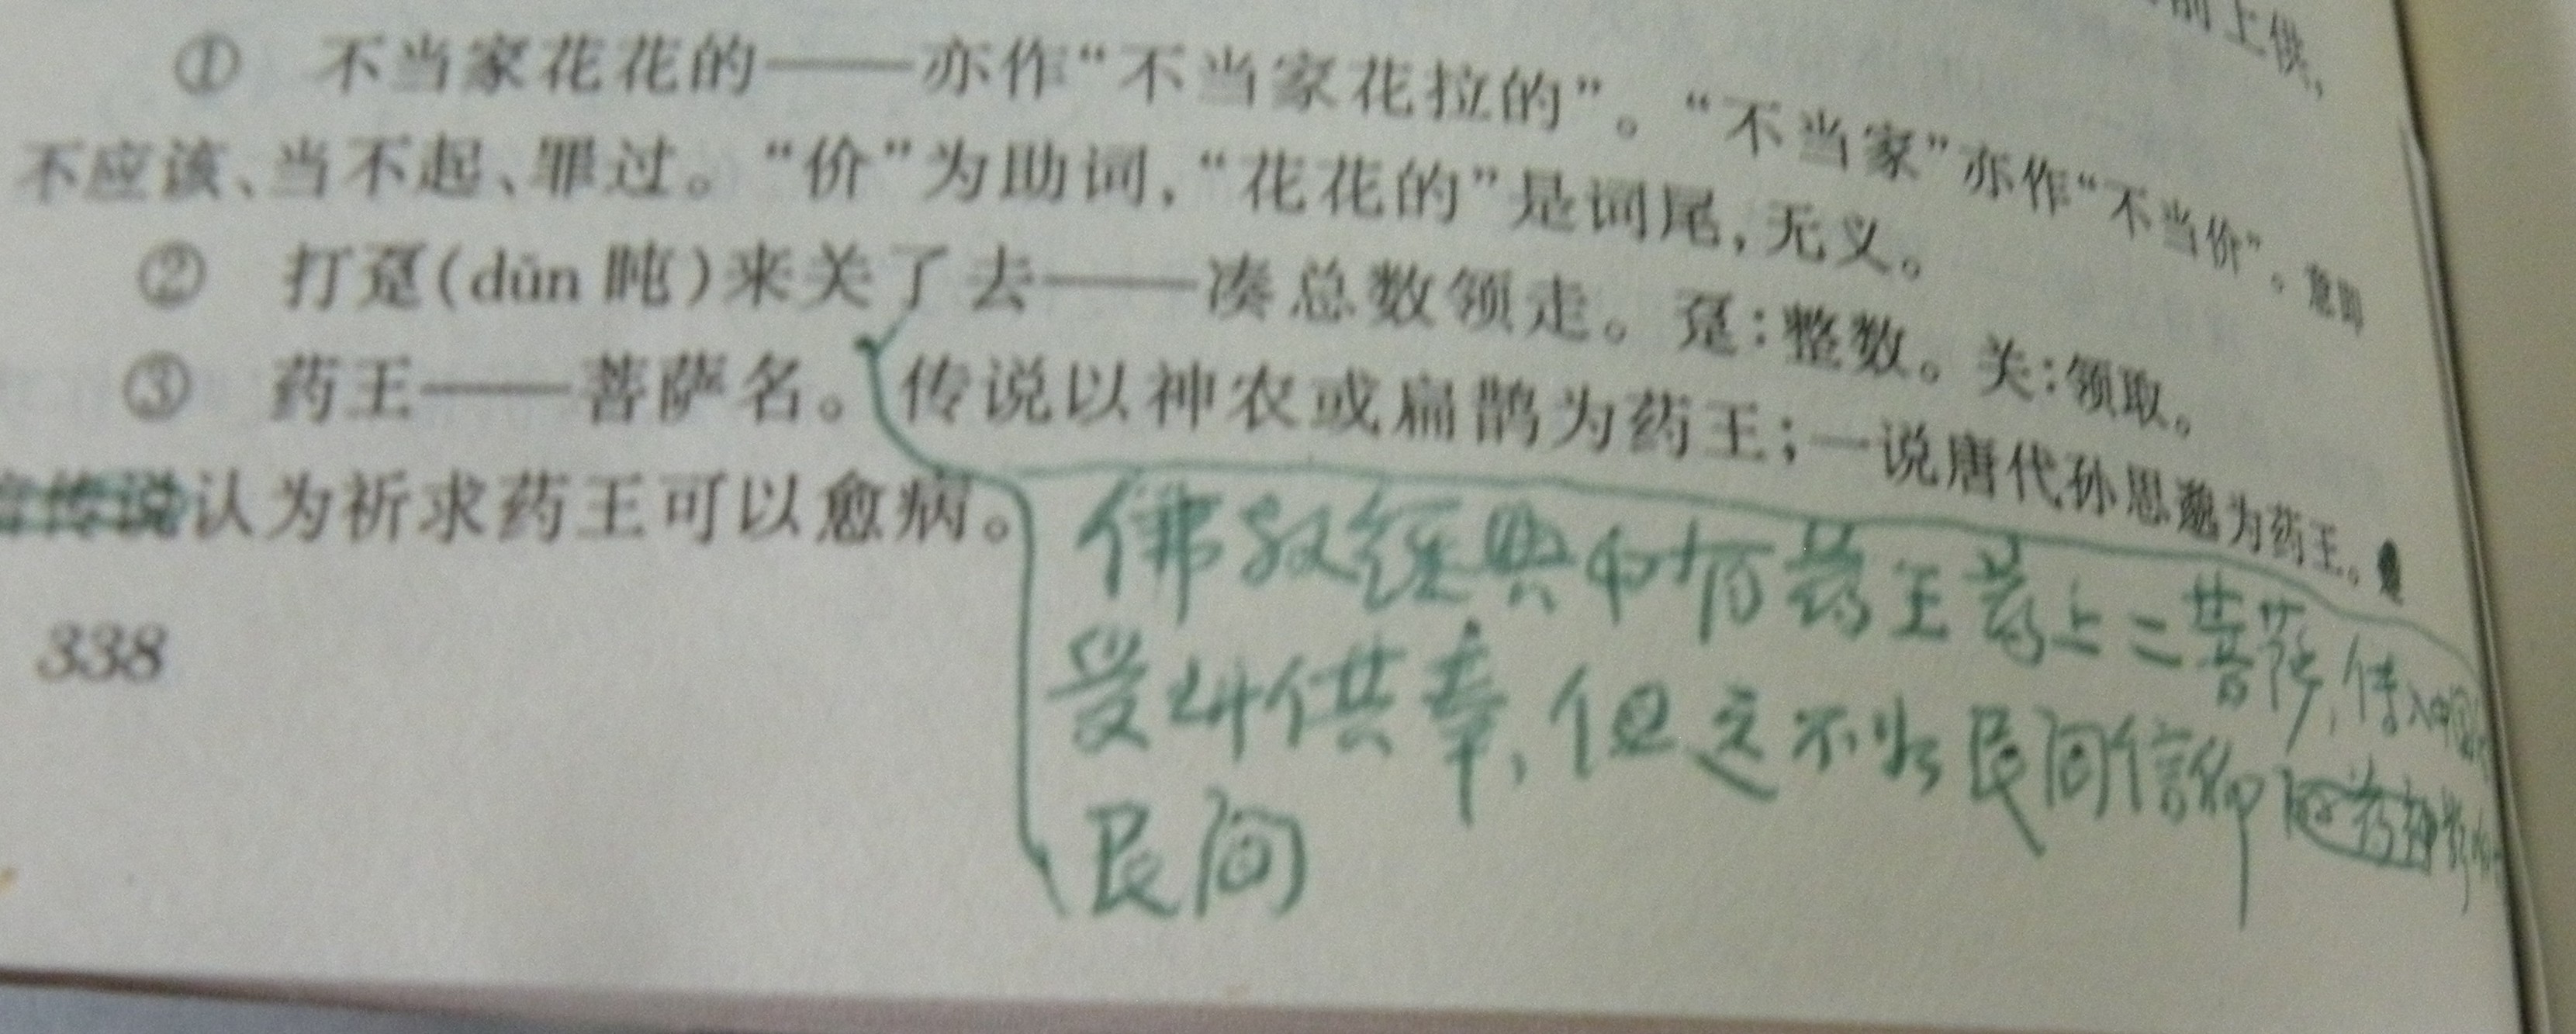 前上供，
① 不当家花花的——亦作“不当家花拉的”。“不当家”亦作“不当价”。意即
不应该、当不起、罪过。“价”为助词，“花花的”是词尾，无义。
② 打趸(dǔn 盹)来关了去——凑总数领走。趸：整数。关：领取。
③ 药王——菩萨名。传说以神农或扁鹊为药王；一说唐代孙思邈为药王。
传说认为祈求药王可以愈病。
佛教经典中有药王药上二菩萨，传入中国
受到供奉，但远不如民间信仰的药神影响
民间
338